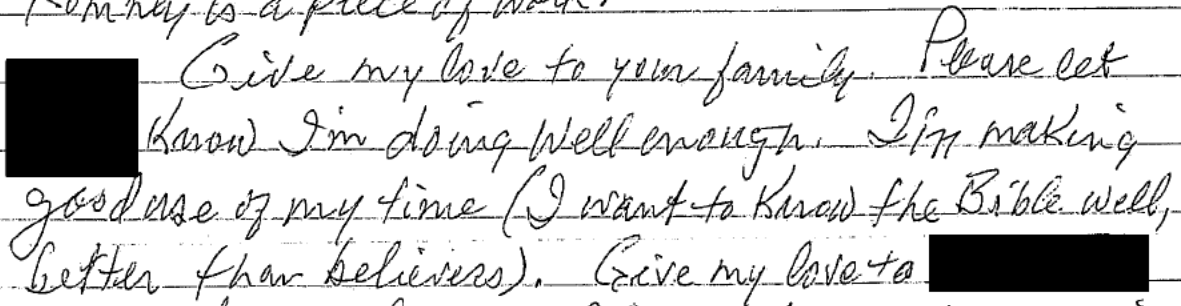 Romney is a piece of work.
Give my love to your family. Please let
know I'm doing well enough. I'm making
good use of my time (I want to know the Bible well,
better than believers). Give my love to